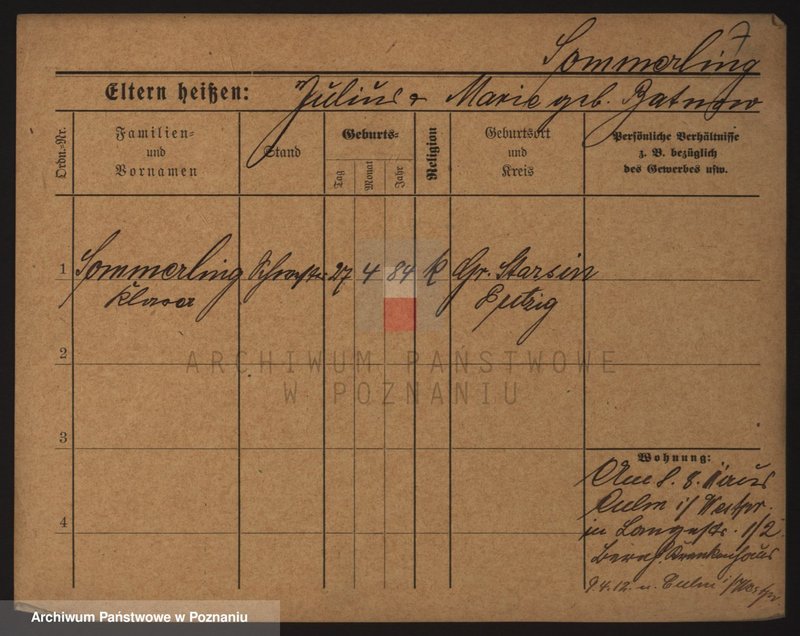 Sommerling
Eltern heißen: Julius & Marie geb.
Ordn.-Nr.
Familien-
und
Vornamen
Stand
Geburts-
Tag
Monat
Jahr
Religion
Geburtsort
und
Kreis
Persönliche Verhältnisse
z. B. bezüglich
des Gewerbes usw.
1 Sommerling 27 4 84 K Gr. Starsin
Klara Putzig
2
ARCHIWUM PAŃSTWOWE
W POZNANIU
3
Wohnung:
Am 8. 8. 11 aus
Culm i/ Westpr.
4
in Langestr. 1/2
Krankenhaus
9.4.12. n. Culm i/Westpr
Archiwum Państwowe w Poznaniu